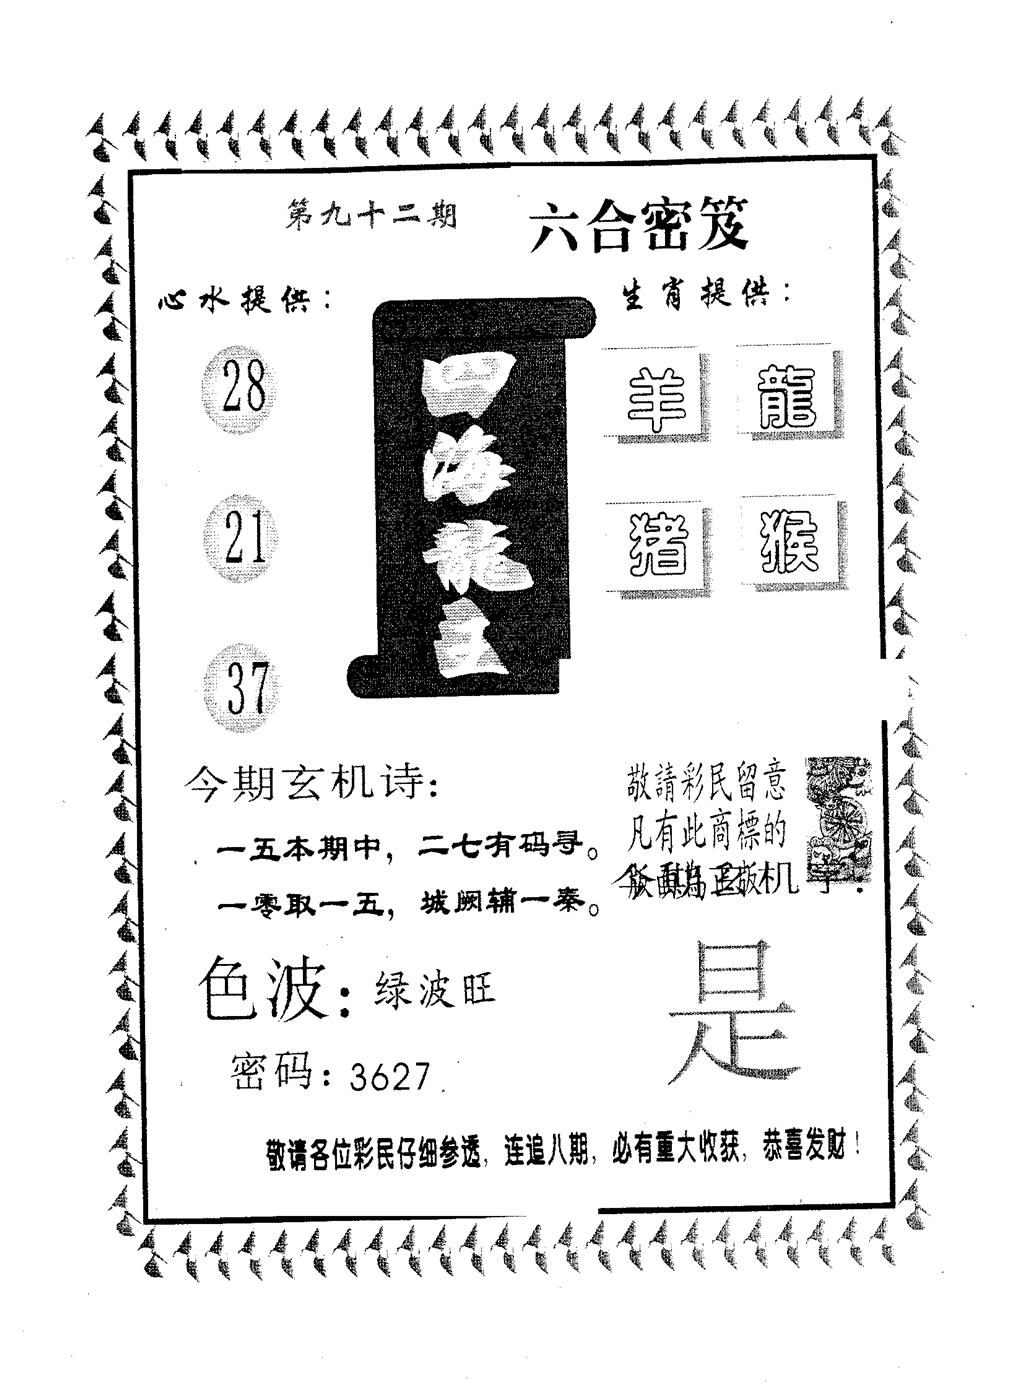 第九十二期
六合密笈
心水提供：
生肖提供：
28
21
37
四海龍王
羊
龍
猪
猴
今期玄机诗：
一五本期中，二七有码寻。
一零取一五，城阙辅一秦。
敬請彩民留意
凡有此商標的
版面為正版
机字：
是
色波：绿波旺
密码：3627
敬请各位彩民仔细参透，连追八期，必有重大收获，恭喜发财！